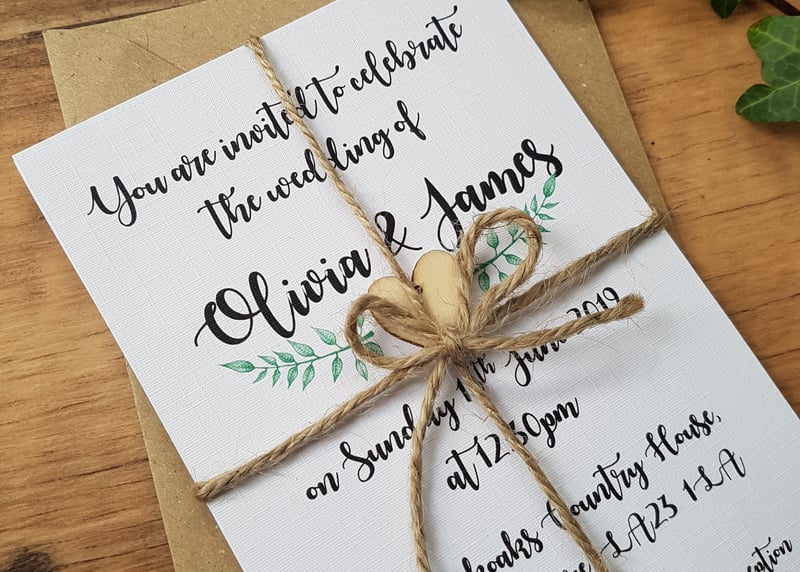 You are invited to celebrate
the wedding of
Olivia & James
on Sunday June 2019
at 12.30pm
Country House,
LA23 1LA